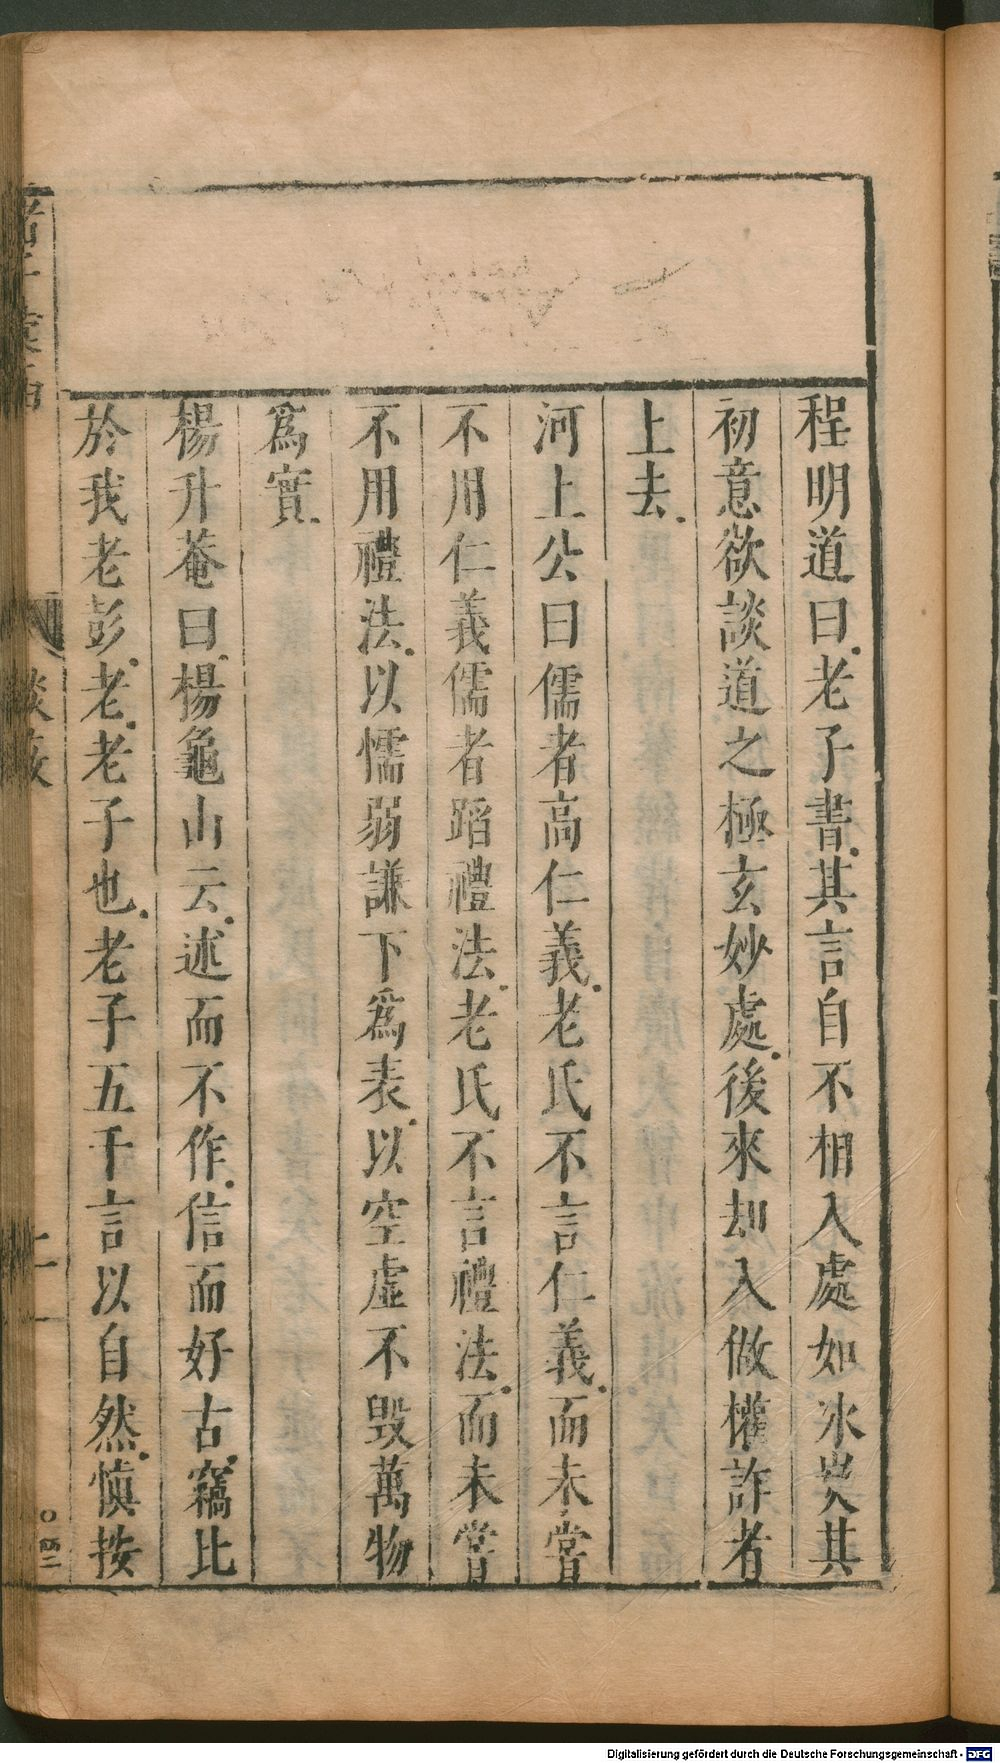 程明道曰老子書其言自不相入處如冰炭其
初意欲談道之極玄妙處後來却入做權詐者
上去
河上公曰儒者高仁義老氏不言仁義而未嘗
不用仁義儒者蹈禮法老氏不言禮法而未嘗
不用禮法以懦弱謙下爲表以空虛不毀萬物
爲實
楊升菴曰楊龜山云述而不作信而好古竊比
於我老彭老老子也老子五千言以自然愼按
Digitalisierung gefördert durch die Deutsche Forschungsgemeinschaft - DFG